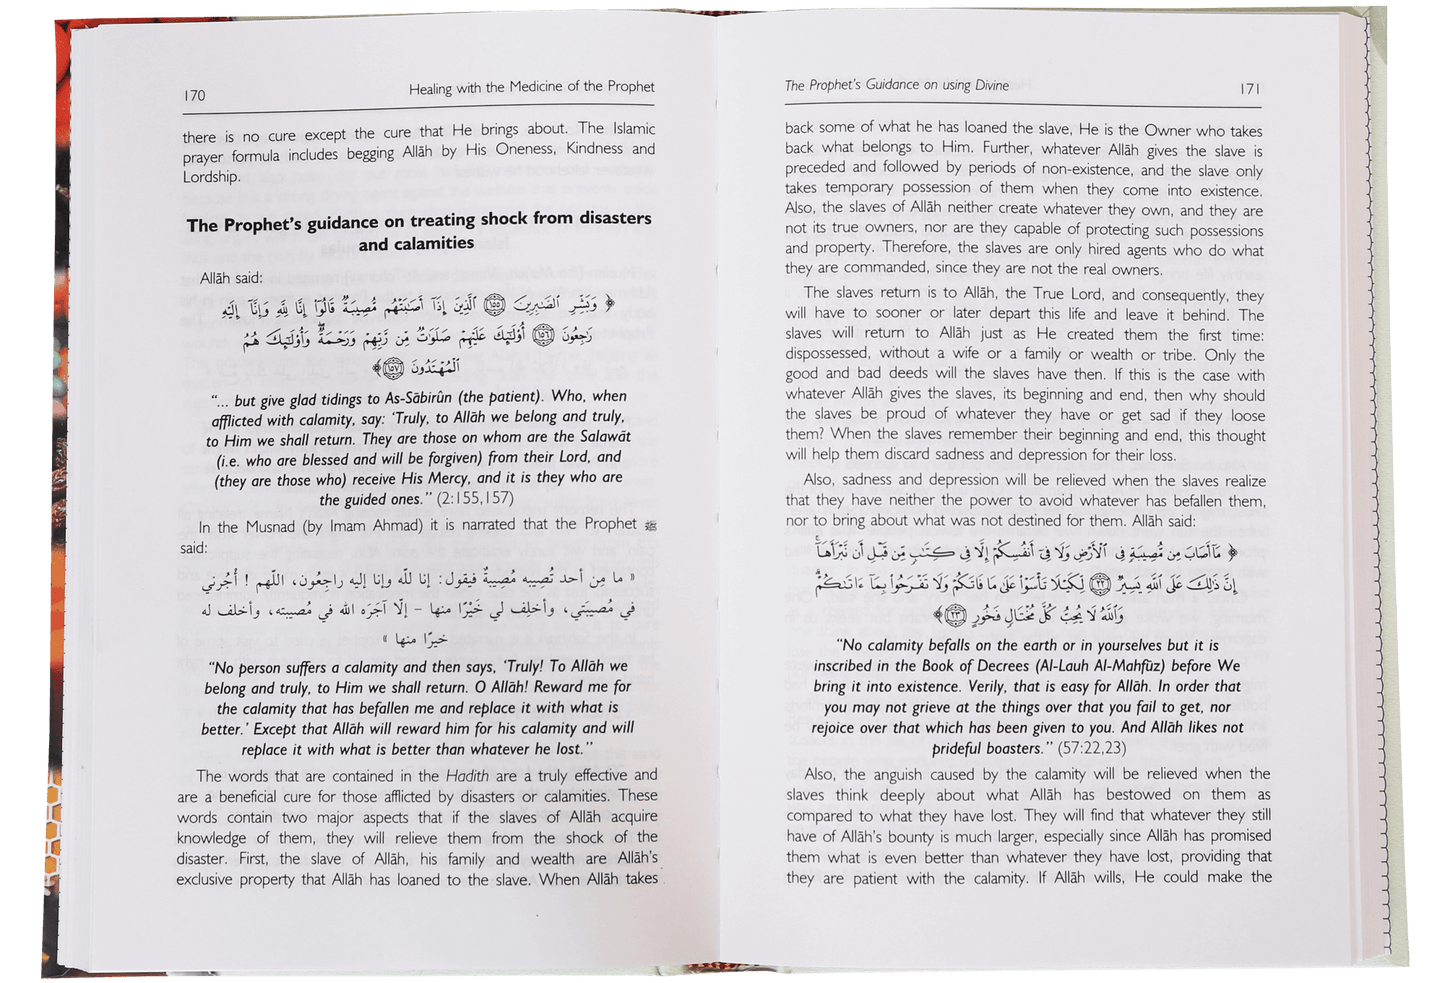 170 Healing with the Medicine of the Prophet
there is no cure except the cure that He brings about. The Islamic
prayer formula includes begging Allāh by His Oneness, Kindness and
Lordship.
The Prophet's guidance on treating shock from disasters
and calamities
Allāh said:
﴿ وَبَشِّرِ الصَّٰبِرِينَ ١٥٥ الَّذِينَ إِذَآ أَصَٰبَتْهُم مُّصِيبَةٌ قَالُوٓا۟ إِنَّا لِلَّهِ وَإِنَّآ إِلَيْهِ
رَٰجِعُونَ ١٥٦ أُو۟لَٰٓئِكَ عَلَيْهِمْ صَلَوَٰتٌ مِّن رَّبِّهِمْ وَرَحْمَةٌ ۖ وَأُو۟لَٰٓئِكَ هُمُ
الْمُهْتَدُونَ ١٥٧ ﴾
“... but give glad tidings to As-Sābirûn (the patient). Who, when
afflicted with calamity, say: ‘Truly, to Allāh we belong and truly,
to Him we shall return. They are those on whom are the Salawāt
(i.e. who are blessed and will be forgiven) from their Lord, and
(they are those who) receive His Mercy, and it is they who are
the guided ones.” (2:155,157)
In the Musnad (by Imam Ahmad) it is narrated that the Prophet ﷺ
said:
« ما مِن أحد تُصيبه مُصِيبةٌ فيقول: إنا لله وإنا إليه راجِعُون، اللّهم ! أُجُرني
في مُصيبَتي، وأخلِف لي خَيْرًا منها - إلّا آجَرَه الله في مُصيبته، وأخلف له
خيرًا منها »
“No person suffers a calamity and then says, ‘Truly! To Allāh we
belong and truly, to Him we shall return. O Allāh! Reward me for
the calamity that has befallen me and replace it with what is
better.’ Except that Allāh will reward him for his calamity and will
replace it with what is better than whatever he lost.”
The words that are contained in the Hadith are a truly effective and
are a beneficial cure for those afflicted by disasters or calamities. These
words contain two major aspects that if the slaves of Allāh acquire
knowledge of them, they will relieve them from the shock of the
disaster. First, the slave of Allāh, his family and wealth are Allāh's
exclusive property that Allāh has loaned to the slave. When Allāh takes
The Prophet's Guidance on using Divine 171
back some of what he has loaned the slave, He is the Owner who takes
back what belongs to Him. Further, whatever Allāh gives the slave is
preceded and followed by periods of non-existence, and the slave only
takes temporary possession of them when they come into existence.
Also, the slaves of Allāh neither create whatever they own, and they are
not its true owners, nor are they capable of protecting such possessions
and property. Therefore, the slaves are only hired agents who do what
they are commanded, since they are not the real owners.
The slaves return is to Allāh, the True Lord, and consequently, they
will have to sooner or later depart this life and leave it behind. The
slaves will return to Allāh just as He created them the first time:
dispossessed, without a wife or a family or wealth or tribe. Only the
good and bad deeds will the slaves have then. If this is the case with
whatever Allāh gives the slaves, its beginning and end, then why should
the slaves be proud of whatever they have or get sad if they loose
them? When the slaves remember their beginning and end, this thought
will help them discard sadness and depression for their loss.
Also, sadness and depression will be relieved when the slaves realize
that they have neither the power to avoid whatever has befallen them,
nor to bring about what was not destined for them. Allāh said:
﴿ مَآ أَصَابَ مِن مُّصِيبَةٍ فِى الْأَرْضِ وَلَا فِىٓ أَنفُسِكُمْ إِلَّا فِى كِتَٰبٍ مِّن قَبْلِ أَن نَّبْرَأَهَآ ۚ
إِنَّ ذَٰلِكَ عَلَى اللَّهِ يَسِيرٌ ٢٢ لِّكَيْلَا تَأْسَوْا۟ عَلَىٰ مَا فَاتَكُمْ وَلَا تَفْرَحُوا۟ بِمَآ ءَاتَىٰكُمْ ۗ
وَاللَّهُ لَا يُحِبُّ كُلَّ مُخْتَالٍ فَخُورٍ ٢٣ ﴾
“No calamity befalls on the earth or in yourselves but it is
inscribed in the Book of Decrees (Al-Lauh Al-Mahfūz) before We
bring it into existence. Verily, that is easy for Allāh. In order that
you may not grieve at the things over that you fail to get, nor
rejoice over that which has been given to you. And Allāh likes not
prideful boasters.” (57:22,23)
Also, the anguish caused by the calamity will be relieved when the
slaves think deeply about what Allāh has bestowed on them as
compared to what they have lost. They will find that whatever they still
have of Allāh's bounty is much larger, especially since Allāh has promised
them what is even better than whatever they have lost, providing that
they are patient with the calamity. If Allāh wills, He could make the